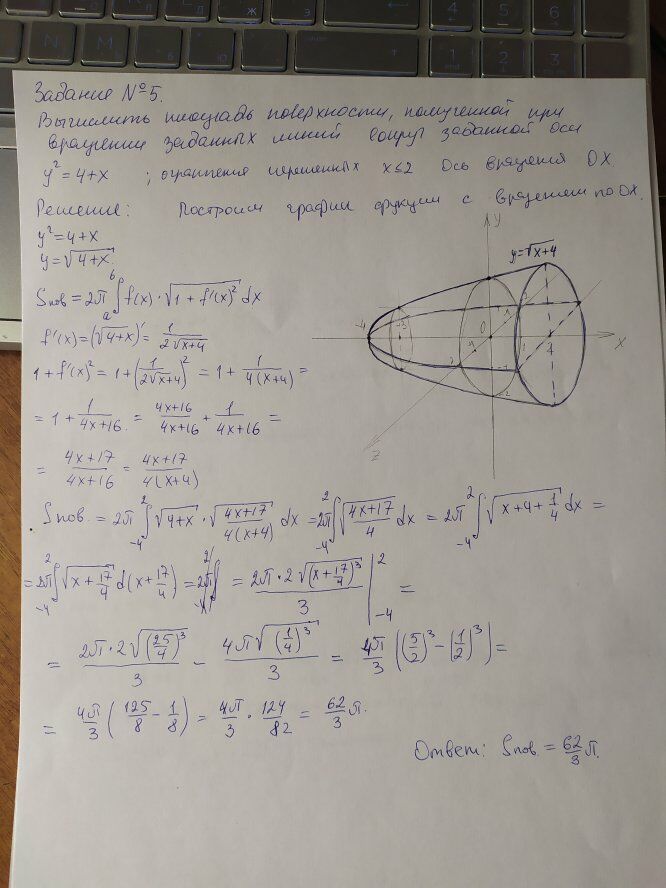 Задание №5.
Вычислить площадь поверхности, полученной при
вращении заданных линий вокруг заданной оси
y² = 4+x ; ограничения переменных x≤2 Ось вращения OX
Решение: Построим график функции с вращением по OX.
y² = 4+x
y = √(4+x)
Sпов = 2π ∫ₐᵇ f(x) · √(1 + f'(x)²) dx
f'(x) = (√(4+x))' = 1/(2√(x+4))
1 + f'(x)² = 1 + (1/(2√(x+4)))² = 1 + 1/(4(x+4)) =
= 1 + 1/(4x+16) = (4x+16)/(4x+16) + 1/(4x+16) =
= (4x+17)/(4x+16) = (4x+17)/(4(x+4))
y = √(x+4)
y
x
z
0
-4
-3
4
-2
Sпов. = 2π ∫₋₄² √(4+x) · √((4x+17)/(4(x+4))) dx = 2π ∫₋₄² √((4x+17)/4) dx = 2π ∫₋₄² √(x+4+1/4) dx =
= 2π ∫₋₄² √(x+17/4) d(x+17/4) = (2π·2√((x+17/4)³))/3 |₋₄² =
= (2π·2√((25/4)³))/3 − (4π√((1/4)³))/3 = 4π/3 ((5/2)³ − (1/2)³) =
= 4π/3 (125/8 − 1/8) = 4π/3 · 124/82 = 62/3 π.
Ответ: Sпов. = 62/3 π.